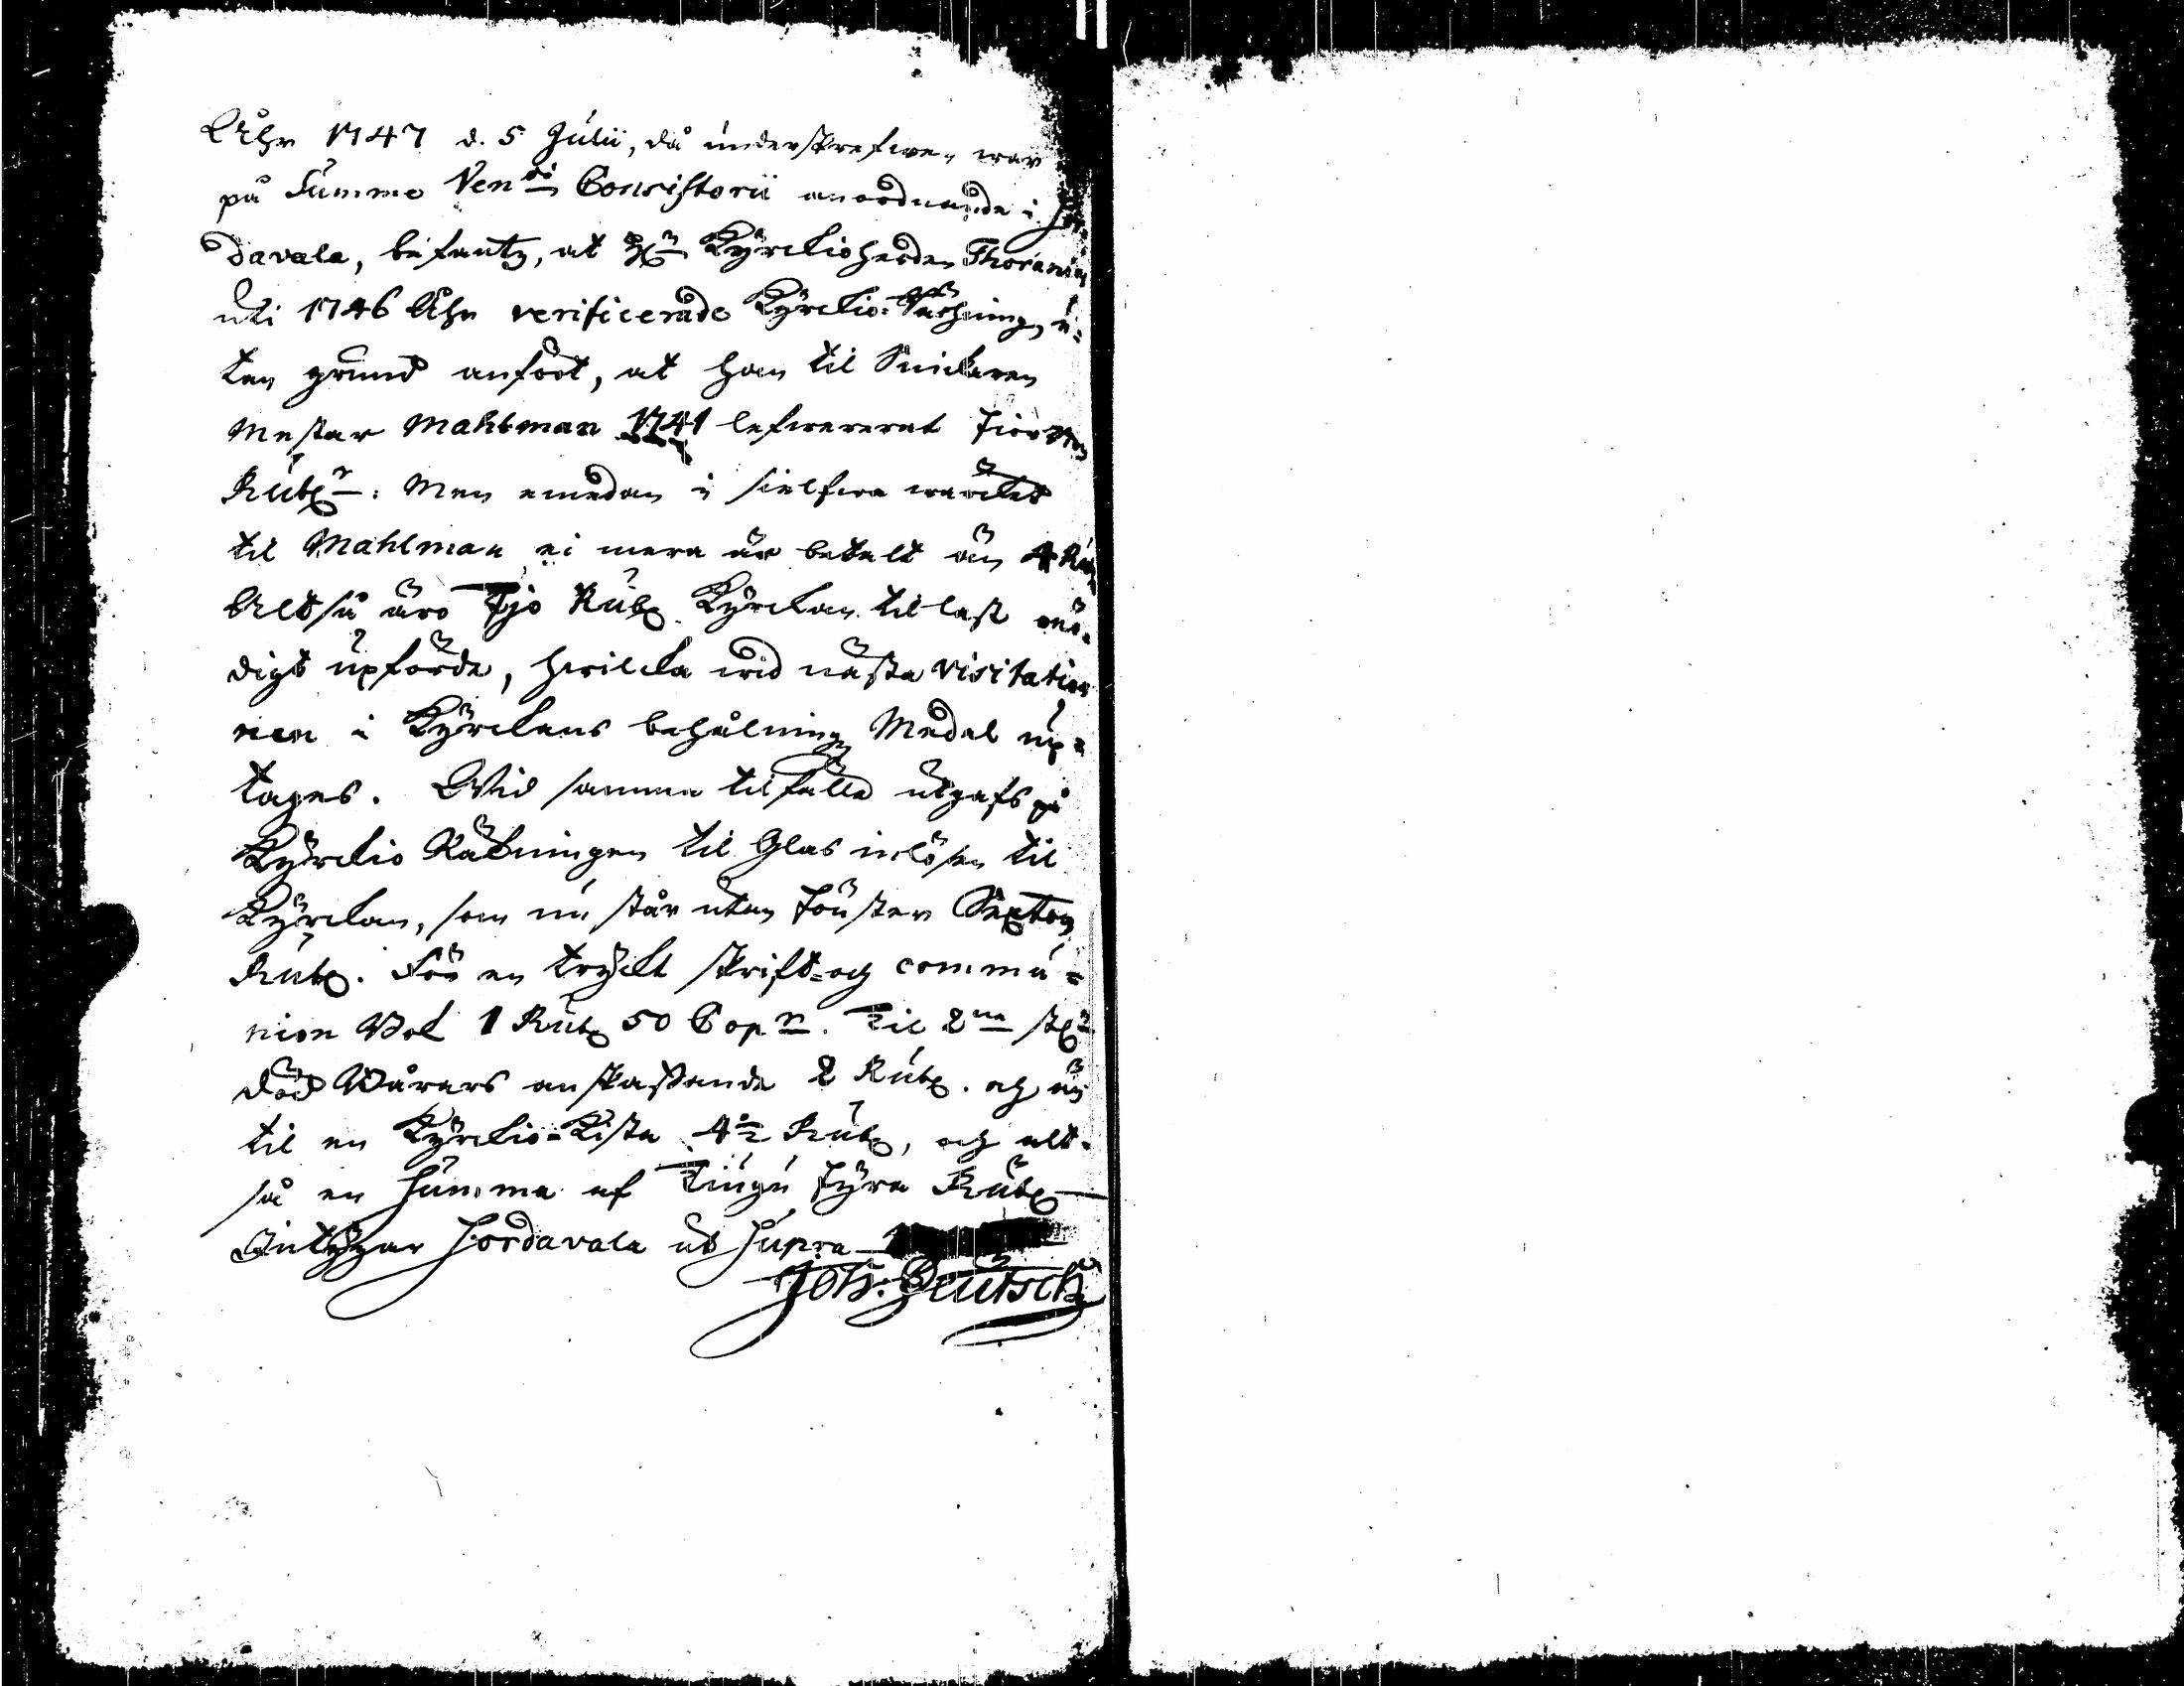 Åhr 1747 d. 5 Julii, då underskrefwen war
på Summe Ven di Consistorii anordnande i Sor-
davala, befantz, at Hn Kÿrckioherden Thoranius
uti 1746 Åhr verificerade Kÿrckio-Räkning, u-
tan grund anfört, at han til Snickaren
Mestar Mahlman 1741 lefwererat Fiorton
Rubr: Men emedan i sielfwa wercket
til Mahlman ei mera är betalt än 4 Rub
Altså äro Tjo Rub. Kÿrckan til last onö-
digt upförde, hwilcka wid nästa visitation
nen i Kÿrckans behålning Medel up-
tages. Wid samma tilfälle utgafs på
Kÿrckio Räkningen til Glas inlösen til
Kÿrckan, som nu står utan Fönster Sexton
Rub. För en tryckt skrift- och commu-
nion Bok 1 Rub 50 Copn. Til 2ne st
död Bårars anskaffande 2 Rub. och än
til en Kÿrckio-Kista 4½ Rub, och alt-
så en Summa af Tiugu Fÿra Rub
Intÿgar Sordavala ut Supra
Joh: Deutsch